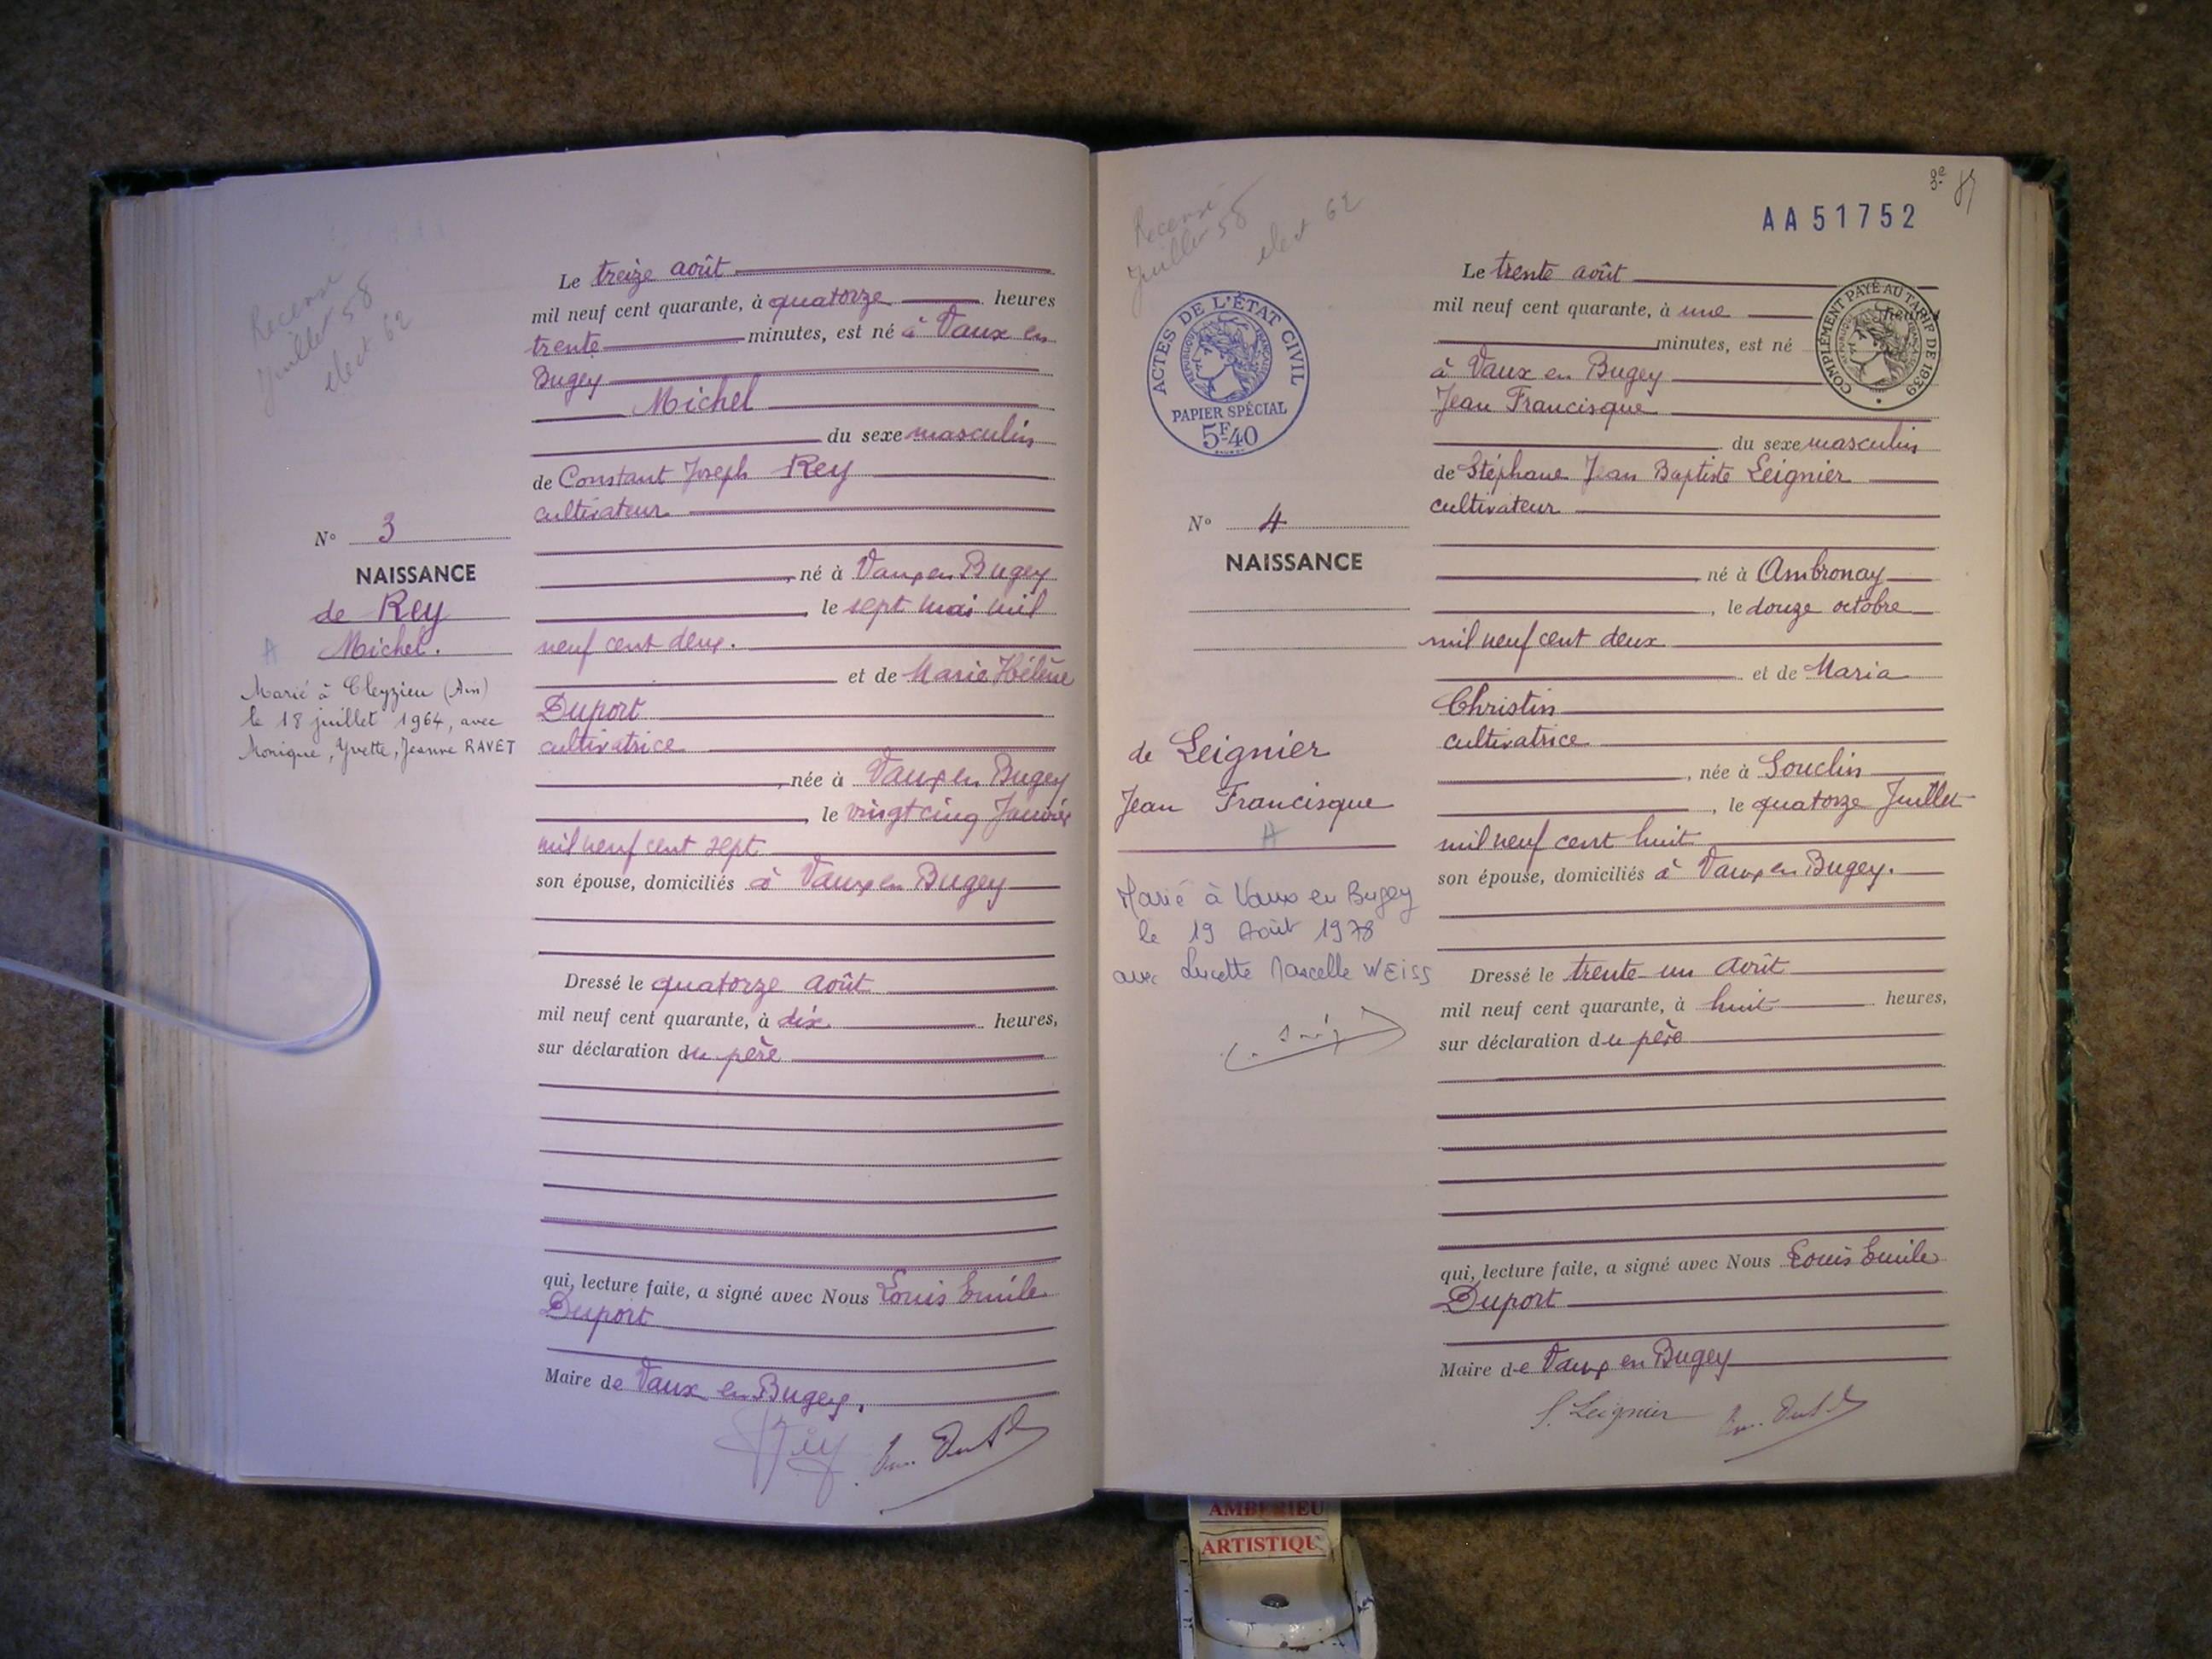 Recensé
Juillet 58
elect 62
Le treize août
mil neuf cent quarante, à quatorze heures
trente minutes, est né à Vaux en
Bugey
Michel
du sexe masculin
de Constant Joseph Rey
cultivateur
né à Vaux en Bugey
, le sept mai mil
neuf cent deux.
et de Marie Hélène
Duport
cultivatrice
, née à Vaux en Bugey
, le vingt cinq Janvier
mil neuf cent sept
son épouse, domiciliés à Vaux en Bugey
Dressé le quatorze août
mil neuf cent quarante, à dix heures,
sur déclaration du père
qui, lecture faite, a signé avec Nous Louis Emile
Duport
Maire de Vaux en Bugey.
N° 3
NAISSANCE
de Rey
Michel.
A
Marié à Cleyzieu (Ain)
le 18 juillet 1964, avec
Monique, Yvette, Jeanne RAVET
Recensé
Juillet 58
elect 62
3e
AA51752
ACTES DE L'ÉTAT CIVIL
RÉPUBLIQUE FRANÇAISE
PAPIER SPÉCIAL
5F40
COMPLÉMENT PAYÉ AU TARIF DE 1939
Le trente août
mil neuf cent quarante, à une heures
minutes, est né
à Vaux en Bugey
Jean Francisque
du sexe masculin
de Stéphane Jean Baptiste Leignier
cultivateur
né à Ambronay
, le douze octobre
mil neuf cent deux
et de Maria
Christin
cultivatrice
, née à Souclin
, le quatorze Juillet
mil neuf cent huit
son épouse, domiciliés à Vaux en Bugey.
Dressé le trente un août
mil neuf cent quarante, à huit heures,
sur déclaration du père
qui, lecture faite, a signé avec Nous Louis Emile
Duport
Maire de Vaux en Bugey
S. Leignier
N° 4
NAISSANCE
de Leignier
Jean Francisque
A
Marié à Vaux en Bugey
le 19 Août 1978
avec Lucette Marcelle WEISS
AMBERIEU
ARTISTIQU